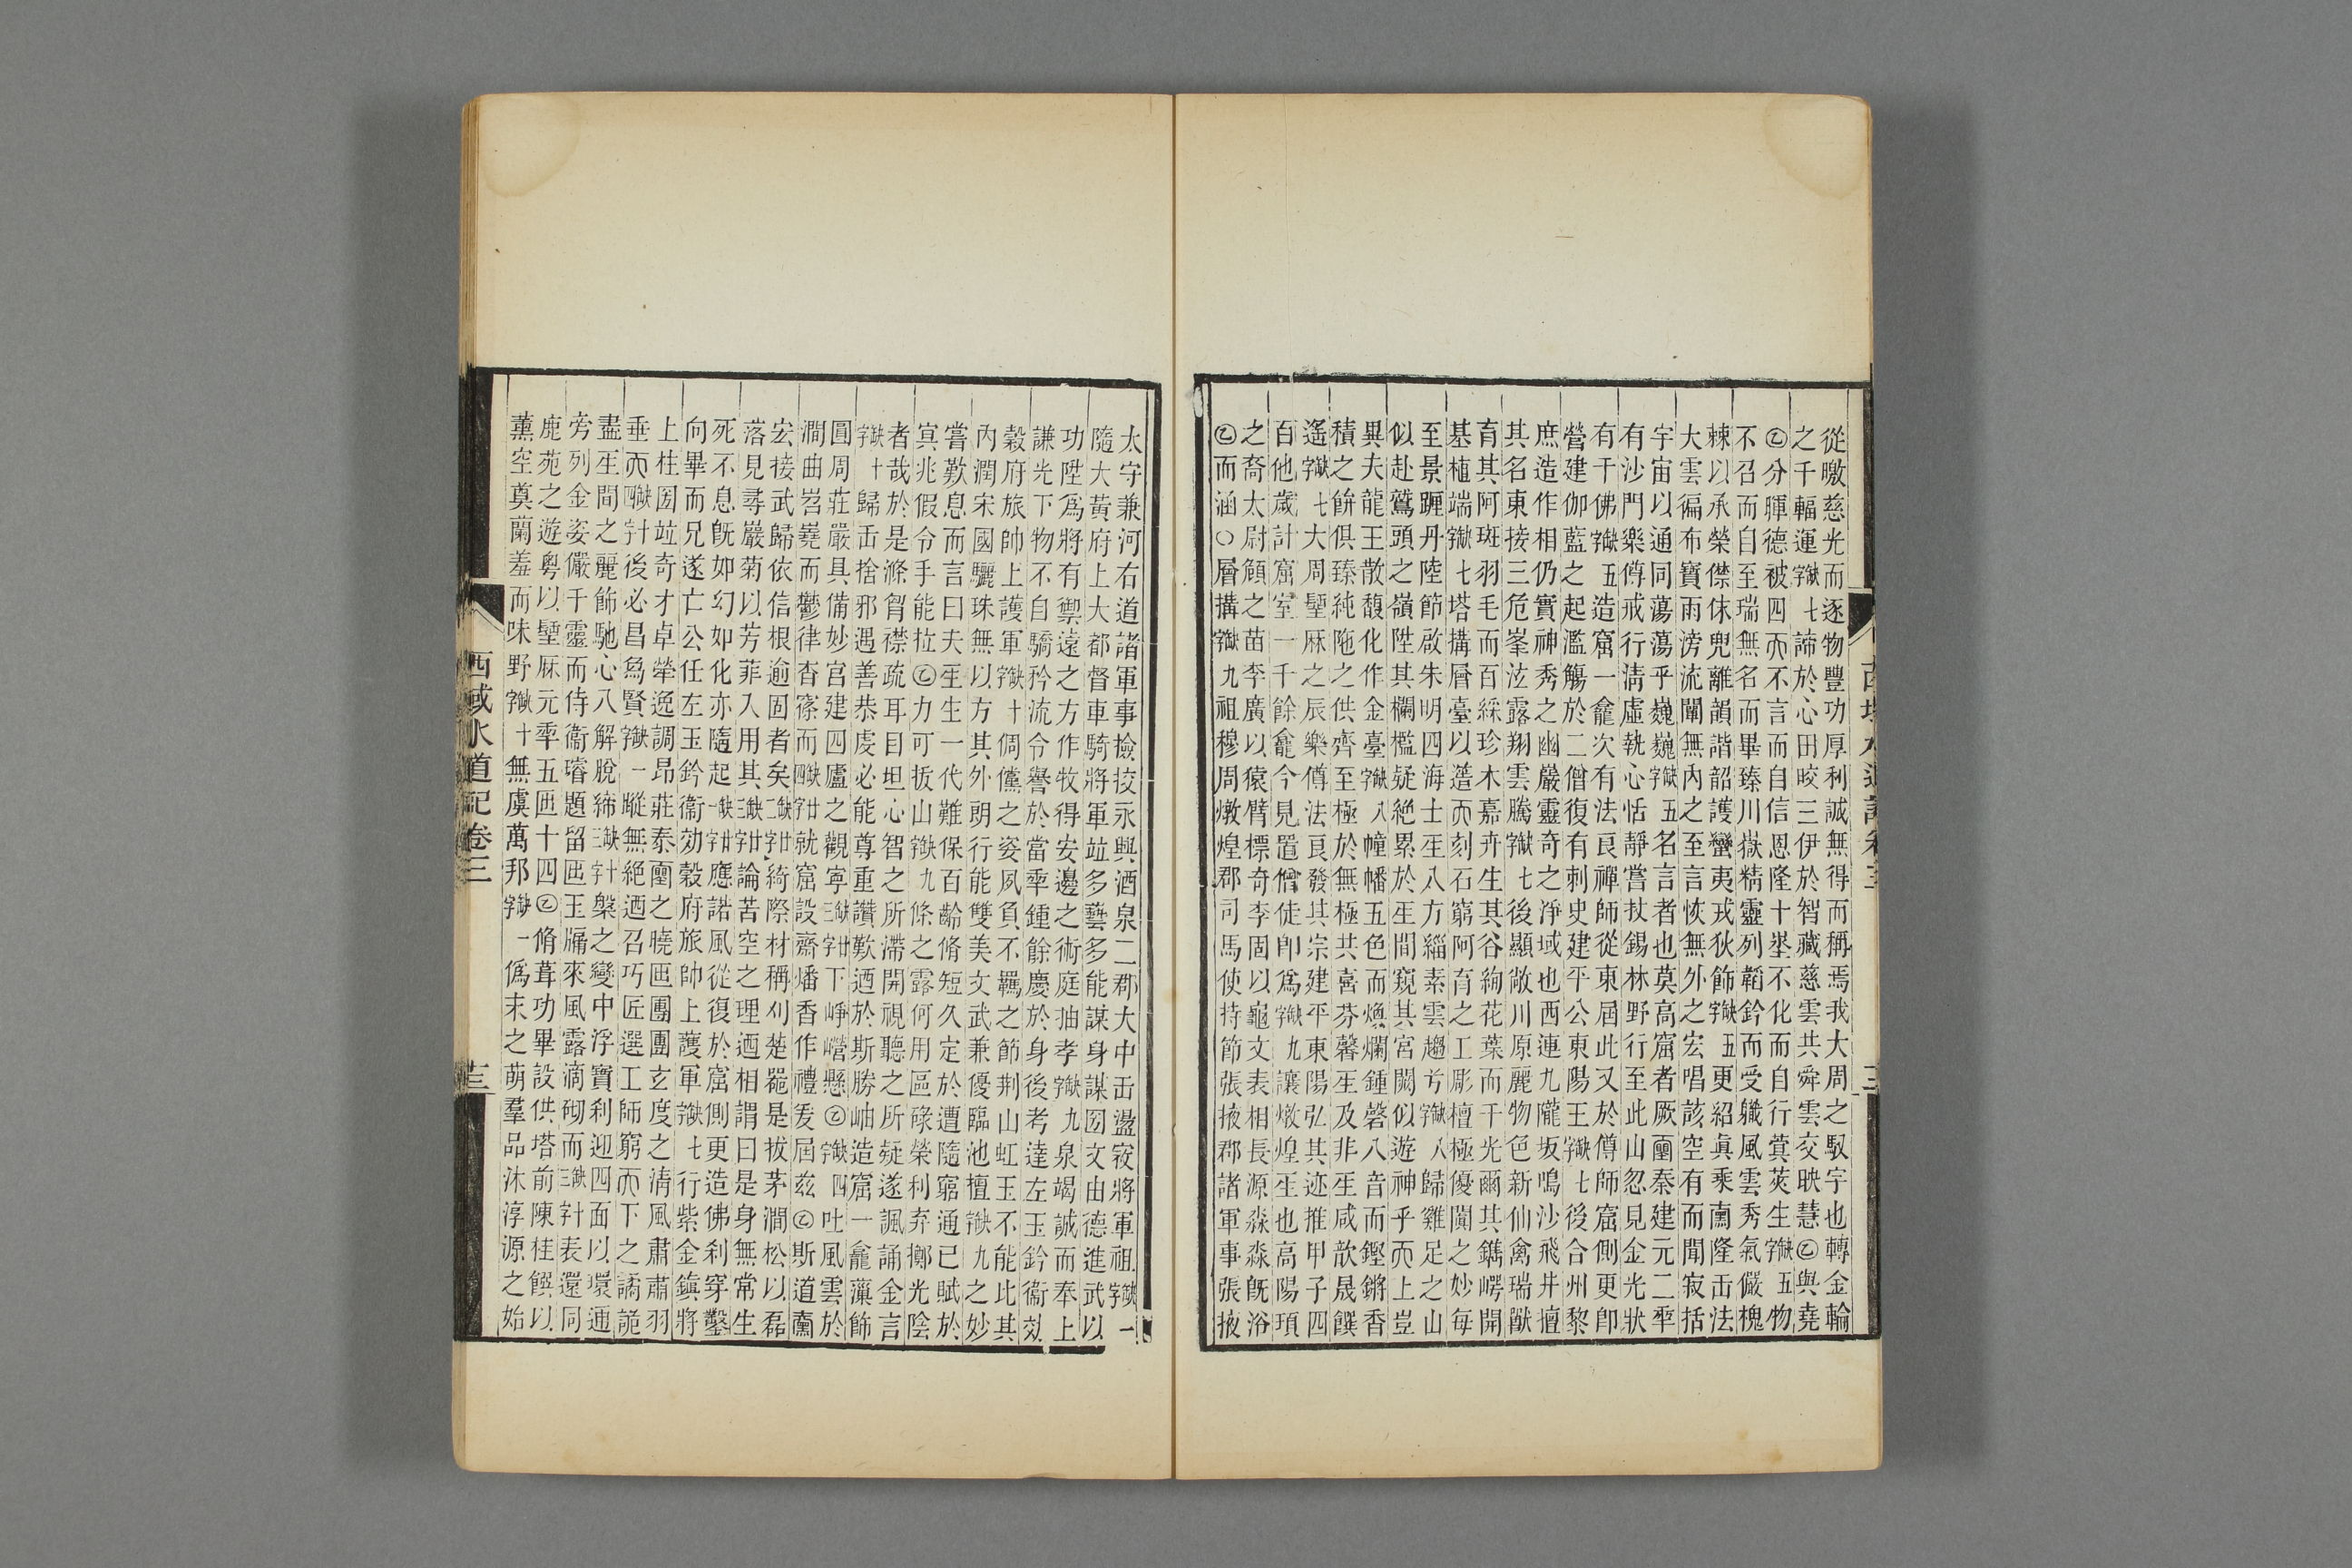 從暾慈光而逐物豐功厚利誠無得而稱焉我大周之馭宇也轉金輪
之千輻運缺七字諦於心田皎三伊於智藏慈雲共舜雲交映慧𡆠與堯
𡆠分暉德被四𠀑不言而自信恩隆十埊不化而自行蓂莢生缺五字物
不召而自至瑞無名而畢臻川嶽精靈列韜鈐而受軄風雲秀氣儼槐
棘以承榮傑休兜離韻諧韶護蠻夷戎狄飾缺五字更紹眞乘𠧋隆𠙺法
大雲徧布寶雨滂流闡無內之至言恢無外之宏唱該空有而聞寂括
宇宙以通同蕩蕩乎巍巍缺五字名言者也莫高窟者厥𡔈秦建元二𠡦
有沙門樂僔戒行清虛執心恬靜嘗杖錫林野行至此山忽見金光狀
有千佛缺五字造窟一龕次有法良禪師從東屆此又於僔師窟側更卽
營建伽藍之起濫觴於二僧復有刺史建平公東陽王缺七字後合州黎
庶造作相仍實神秀之幽巖靈奇之淨域也西連九隴坂鳴沙飛井擅
其名東接三危峯泫露翔雲騰缺七字後顯敞川原麗物色新仙禽瑞獸
育其阿斑羽毛而百綵珍木嘉卉生其谷絢花葉而千光爾其鐫崿開
基植端缺七字塔搆層臺以簉𠀑刻石窮阿育之工彫檀極優闐之妙每
至景躔丹陸節啟朱明四海士𤯔八方緇素雲趨兮缺八字歸雞足之山
似赴鷲頭之嶺陞其欄檻疑絶累於𤯔間窺其宮闕似遊神乎𠀑上豈
異夫龍王散馥化作金臺缺八字幢幡五色而煥爛鍾磬八音而鏗鏘香
積之餅俱臻純陁之供齊至極於無極共喜芬馨𤯔及非𤯔咸歆晟饌
遙缺七字大周𨲢厤之辰樂僔法良發其宗建平東陽弘其迹推甲子四
百他歲計窟室一千餘龕今見置僧徒卽爲缺九字讓燉煌𤯔也高陽頊
之裔太尉頠之苗李廣以猿臂標奇李固以龜文表相長源淼淼旣浴
𡆠而涵〇層搆缺九字祖穆周燉煌郡司馬使持節張掖郡諸軍事張掖
太守兼河右道諸軍事撿挍永興酒泉二郡大中𠙺盪寇將軍祖缺一字
隨大黃府上大都督車騎將軍竝多藝多能謀身謀圀文由德進武以
功陞爲將有禦遠之方作牧得安邊之術庭抽孝缺九字泉竭誠而奉上
謙光下物不自驕矜流令譽於當𠡦鍾餘慶於身後考達左玉鈐衞效
穀府旅帥上護軍缺十字倜儻之姿夙負不羈之節荆山虹玉不能比其
內潤宋國驪珠無以方其外朗行能雙美文武兼優臨池擅缺九字之妙
嘗歎息而言曰夫𤯔生一代難保百齡脩短久定於遭隨窮通已賦於
冥兆假令手能拉𡆠力可拔山缺九字條之露何用區碌榮利弃擲光陰
者哉於是滌胷襟疏耳目坦心智之所滯開視聽之所疑遂諷誦金言
缺十字歸𠙺捨邪遇善恭虔必能尊重讚歎迺於斯勝岫造窟一龕藻飾
圓周莊嚴具備妙宮建四廬之觀寧缺廿三字下崢嶸懸𡆠缺四字吐風雲於
澗曲岧嶤而鬱律杳篠而缺廿四字就窟設齋燔香作禮爰屆茲𡆠斯道𠧋
宏接武歸依信根逾固者矣缺廿二字綺際材稱刈楚毓是拔茅澗松以磊
落見尋巖菊以芳菲入用其缺廿三字論苦空之理迺相謂曰是身無常生
死不息旣如幻如化亦隨起缺廿一字應諾風從復於窟側更造佛刹穿鑿
向畢而兄遂亡公任左玉鈐衞効穀府旅帥上護軍缺七字行紫金鎭將
上柱圀竝奇才卓犖逸調昂莊秦𡔈之曉匝團團玄度之清風肅肅羽
垂𠀑缺四十字後必昌爲賢缺一字蹤無絶迺召巧匠選工師窮𠀑下之譎詭
盡𤯔間之麗飾馳心八解脫締缺三十字槃之變中浮寶刹迎四面以環通
旁列金姿儼千靈而侍衞璿題留匝玉牖來風露滴砌而缺三十字表還同
鹿苑之遊粵以𨲢厤元𠡦五匝十四𡆠脩葺功畢設供塔前陳桂饌以
薰空奠蘭羞而味野缺十字無虞萬邦缺一字僞末之萌羣品沐淳源之始
西域水道記卷三